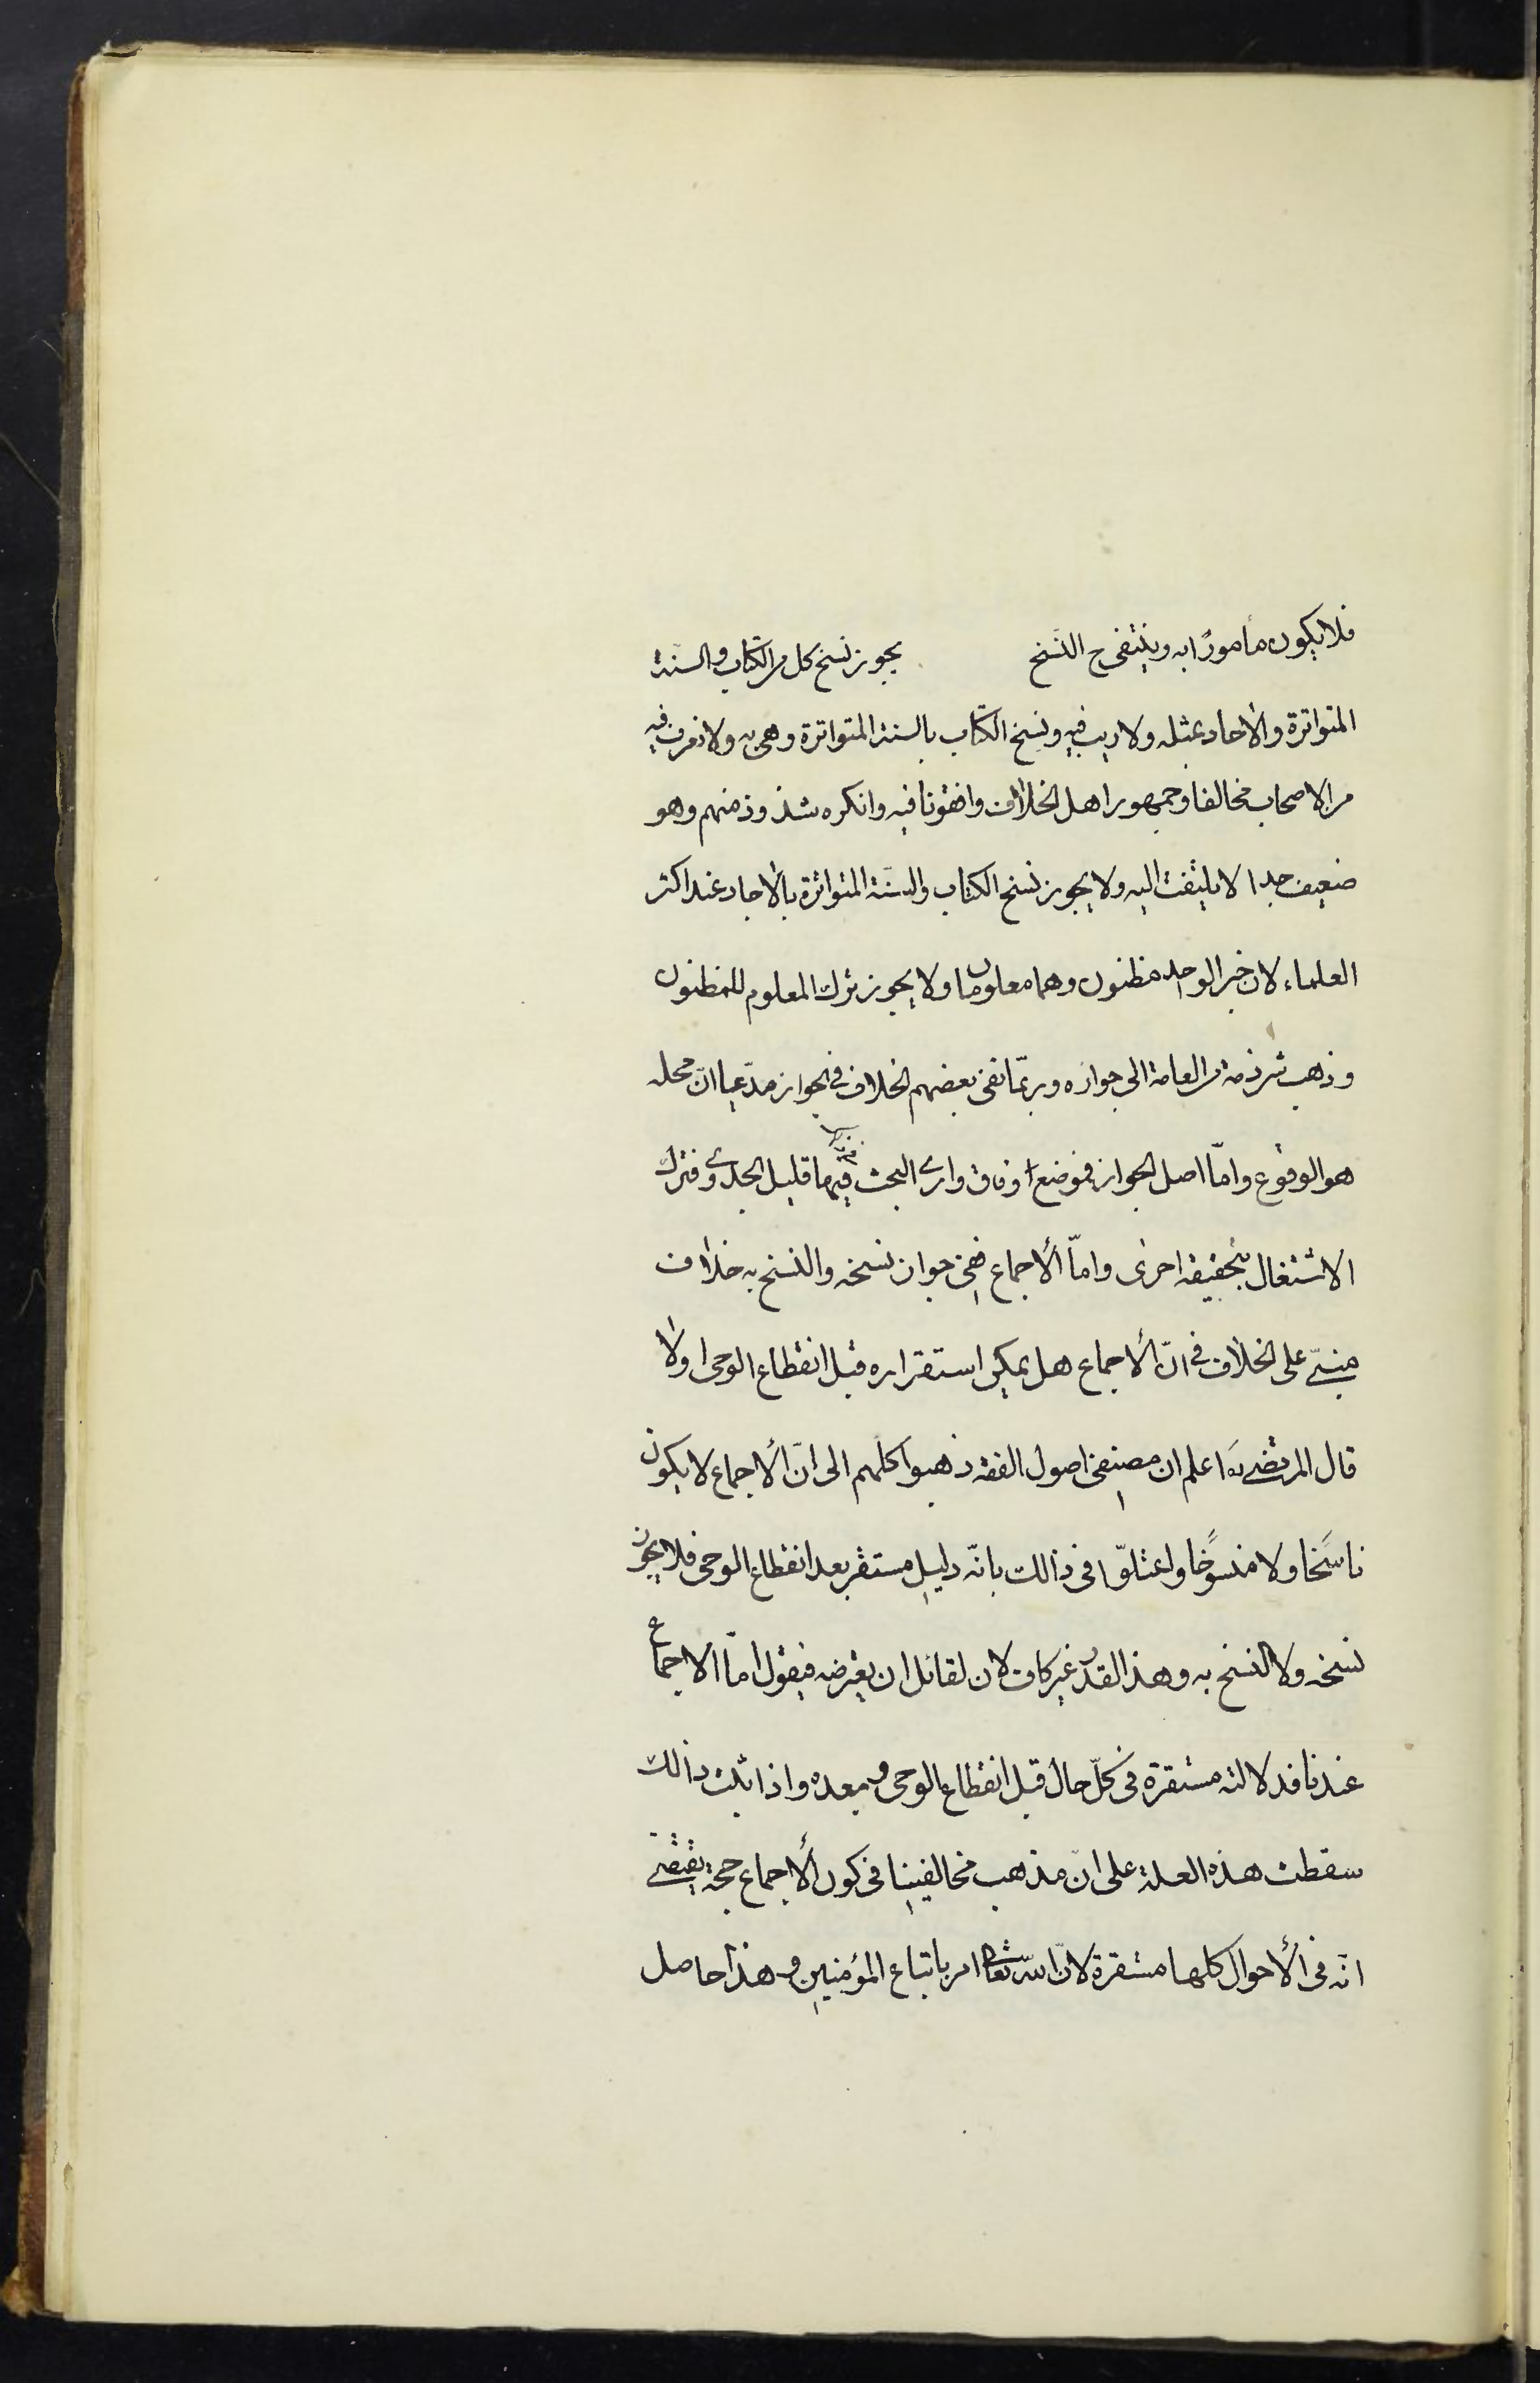 فلا يكون مأمورًا به وينتفي ح النسخ يجوز نسخ كل من الكتاب والسنة
المتواترة والآحاد بمثله ولا ريب فيه ونسخ الكتاب بالسنة المتواترة وهي به ولا نعرف فيه
من الاصحاب مخالفا وجمهور اهل الخلاف وافقونا فيه وانكره شذوذ منهم وهو
ضعيف جدا لا يلتفت اليه ولا يجوز نسخ الكتاب والسنة المتواترة بالآحاد عند اكثر
العلماء لان خبر الواحد مظنون وهما معلومان ولا يجوز ترك المعلوم للمظنون
وذهب شرذمة من العامة الى جوازه وربّما نفى بعضهم الخلاف في الجواز مدّعيا انّ محله
هو الوقوع وامّا اصل الجواز فموضع وفاق وارى البحث فيهما قليل الجدوى فترك
الاشتغال بتحقيقه احرى وامّا الأجماع ففي جواز نسخه والنسخ به خلاف
مبنيّ على الخلاف في انّ الأجماع هل يمكن استقراره قبل انقطاع الوحى اولا
قال المرتضى ره اعلم ان مصنفى اصول الفقه ذهبوا كلهم الى انّ الأجماع لا يكون
ناسخًا ولا منسوخًا واعتلوّا فى ذالك بانّه دليل مستقر بعد انقطاع الوحى فلا يجوز
نسخه ولا النسخ به وهذ القدر غير كاف لان لقائل ان يعترضه فيقول امّا الاجماع
عندنا فدلالته مستقرة فى كلّ حال قبل انقطاع الوحى وبعده واذا ثبت ذالك
سقطت هذه العلة على انّ مذهب مخالفينا فى كون الأجماع حجة يقتضى
انّه فى الأحوال كلها مستقرة لانّ اللّه تعالى امر باتباع المؤمنين وهذا حاصل